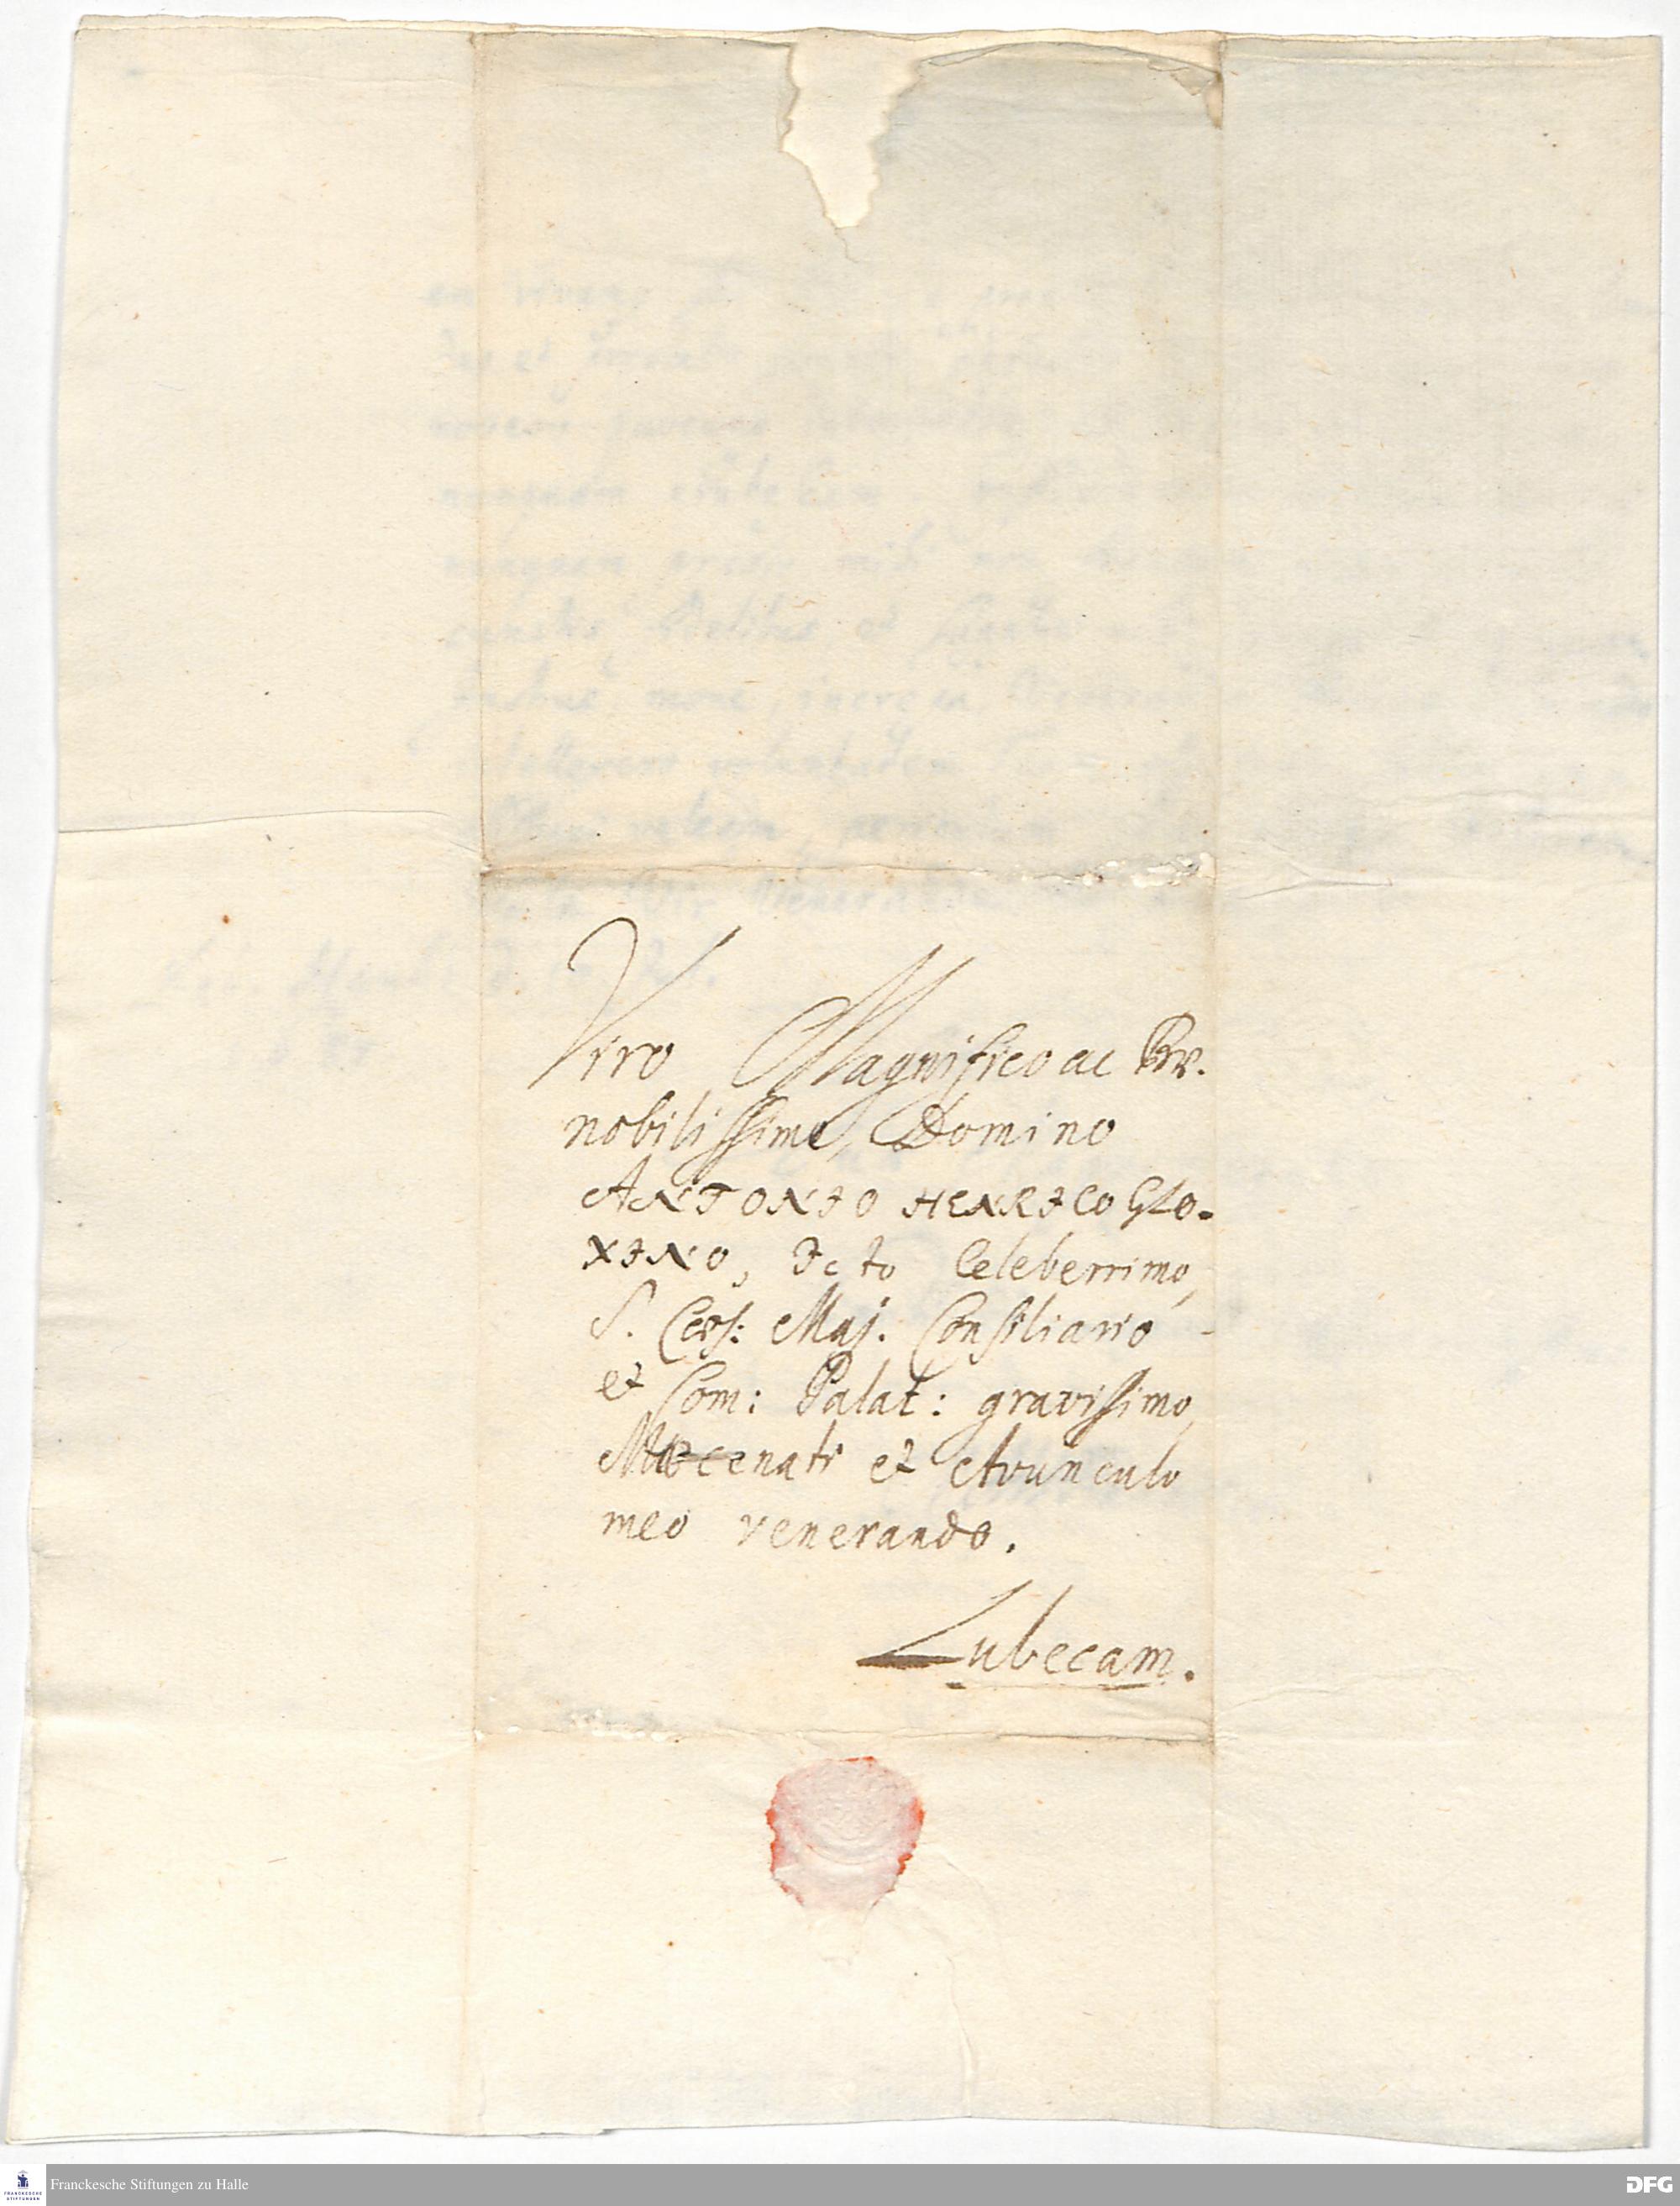 Viro Magnifico ac Præ-
nobilissimo, Domino
ANTONIO HENRICO GLO-
XINO, Icto Celeberrimo,
S. Cæs: Maj. Consiliario
et Com: Palat: gravissimo,
Mæcenati et Avunculo
meo venerando.
Lubecam.
Franckesche Stiftungen zu Halle
DFG